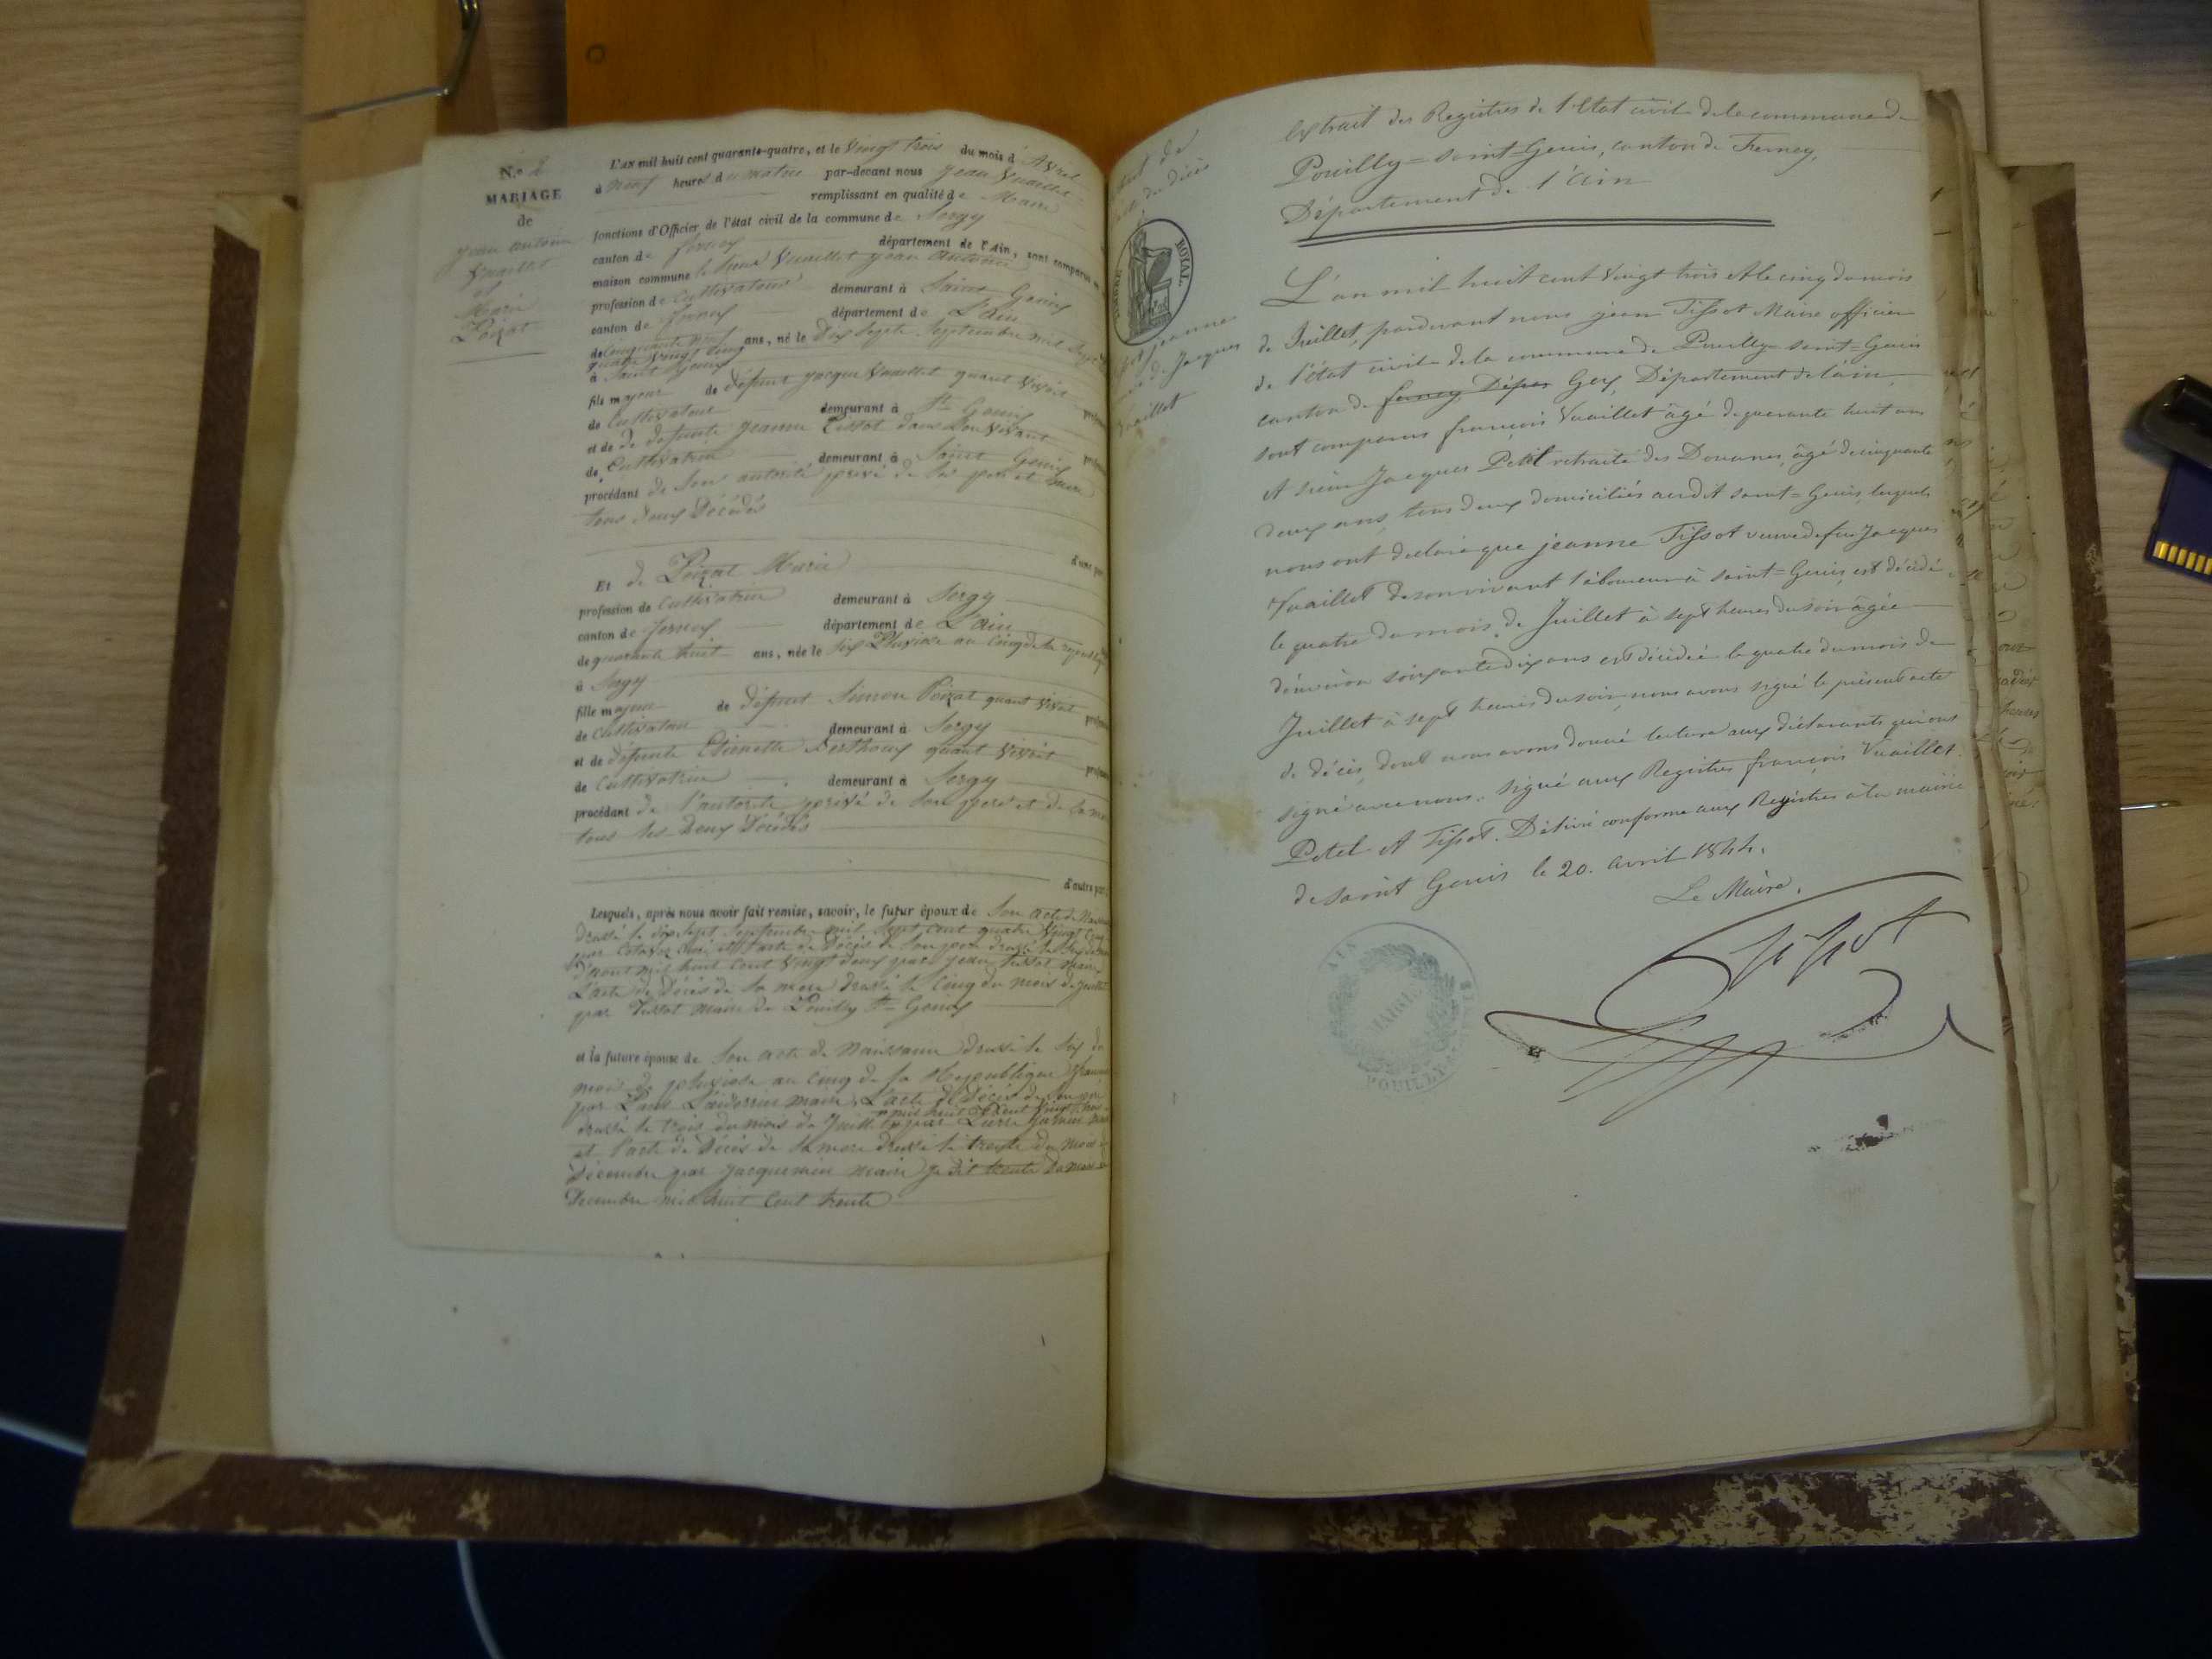 N.° 2
MARIAGE
de
Jean Antoine
Vuaillet
et
Marie
Poizat
L'AN mil huit cent quarante-quatre, et le vingt trois du mois d'Avril
à neuf heures du matin par-devant nous Jean Vuaillet
remplissant en qualité de Maire
fonctions d'Officier de l'état civil de la commune de Sergy
canton de ferney département de l'Ain, sont comparus en
maison commune le Vuaillet Jean Antoine
profession de Cultivateur demeurant à Saint Genis
canton de ferney département de L'ain
de cinquante neuf ans, né le Dix Sept Septembre mil Sept
quatre vingt cinq
à Saint Genis
fils majeur de défunt Jacque Vuaillet quant vivait
de Cultivateur demeurant à St Genis
et de défunte Jeanne Tissot dans Son vivant
de Cultivatrice demeurant à Saint Genis
procédant de Son autorité privé de Sur père et mère
tous deux Décédés
d'une part
Et de Poizat Marie
profession de Cultivatrice demeurant à Sergy
canton de ferney département de L'ain
de quarante huit ans, née le Six Pluviose an Cinq de la
à Sergy
fille majeure de défunt Simon Poizat quant vivait
de Cultivateur demeurant à Sergy
et de défunte Etienette quant vivait
de Cultivatrice demeurant à Sergy
procédant de l'autorité privé de Son père et de Sa
tous les Deux Décédés
d'autre part
Lesquels, après nous avoir fait remise, savoir, le futur époux de Son acte de
drassé le dix Sept Septembre mil Sept cent quatre vingt
par acte de Décès de Son père drassé le
d'aout mil huit cent vingt deux par Jean Tissot maire
L'acte de Décès de Sa mère drassé le Cinq du mois de
par Tissot maire de Pouilly St Genis
et la future épouse de Son acte de Naissance drassé le Six du
mois de pluviose an Cinq de la République
par maire, L'acte de Décès de Son
mil huit Cent vingt
drassé le trois du mois de Juillet par
et l'acte de Décès de Sa mère drassé le trente du mois de
Décembre par Jacquemin maire Je dit trente du mois de
Decembre mil huit Cent trente
TIMBRE ROYAL
de Jacques
Vuaillet
Extrait des Registres de l'Etat civil de la commune de
Pouilly=saint=Genis, canton de Ferney,
Département de l'Ain
L'an mil huit cent vingt trois et le cinq du mois
de Juillet, pardevant nous jean Tissot Maire officier
de l'état civil de la commune de Pouilly=saint=Genis
canton de ferney Dépar Gex, Département de l'ain,
sont comparus françois Vuaillet âgé de quarante huit ans
et sieur Jacques Petel retraité des Douanes, âgé de cinquante
deux ans, tous deux domiciliés audit saint=Genis, lesquels
nous ont déclaré que jeanne Tissot veuve de feu Jacques
Vuaillet de son vivant laboureur à saint=Genis, est décédé
le quatre du mois de Juillet à sept heures du soir âgée
d'environ soixante dix ans est décédée le quatre du mois de
Juillet à sept heures du soir, nous avons signé le présent acte
de décès, dont nous avons donné lecture aux déclarants qui ont
signé avec nous. signé aux Registres françois Vuaillet.
Petel et Tissot. Délivré conforme aux Registres à la mairie
de saint Genis le 20. avril 1844.
Le Maire,
Tissot
AIN
MAIRIE